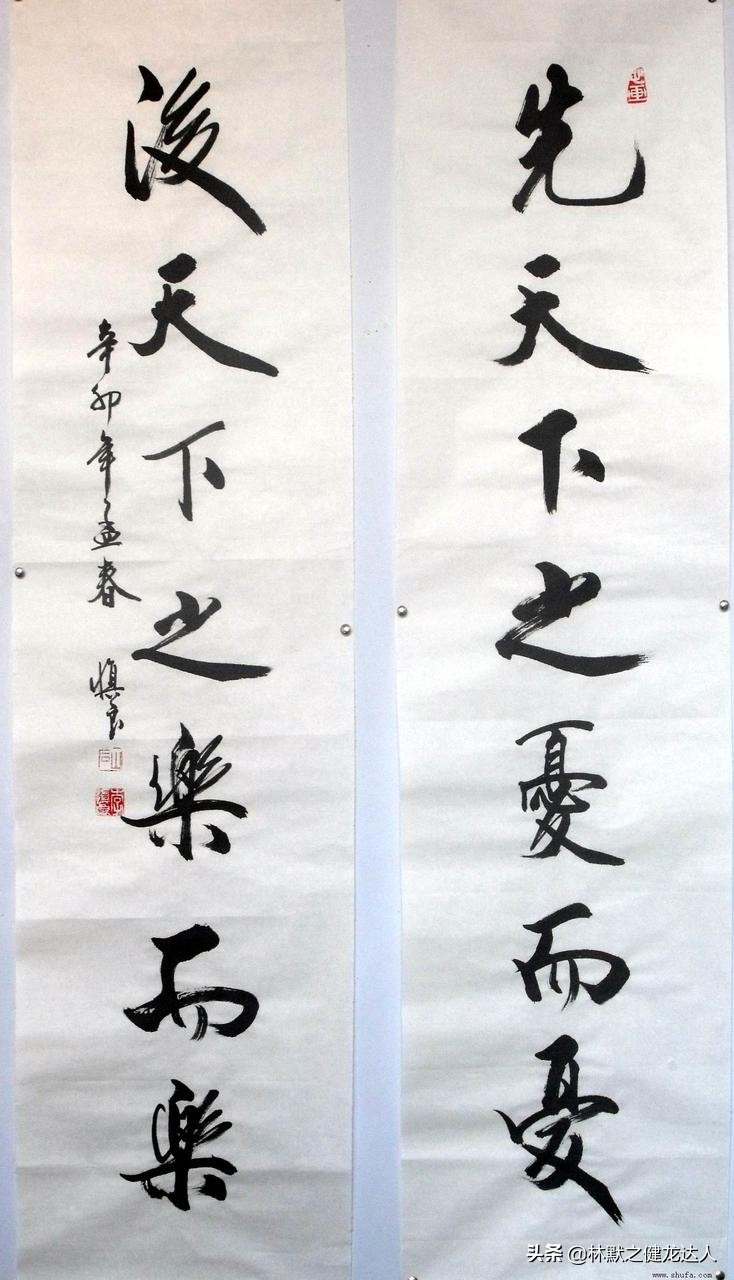 先天下之憂而憂
後天下之樂而樂
辛卯年孟春
慎言
头条 @林默之健龙达人
www.shufa.com